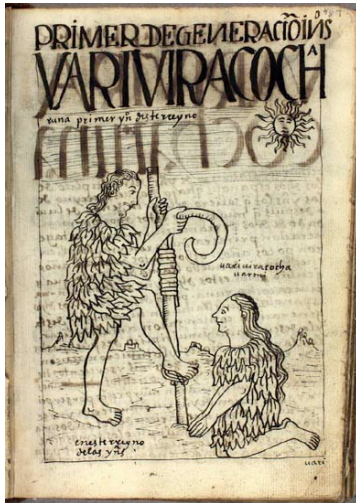 PRIMER DE GENERACIÕ INS
VARIVIRACOCHA
runa primer yn̄ deste rreyno
uari uiracocha
uarmi
en este rreyno
de las yn̄s
uari